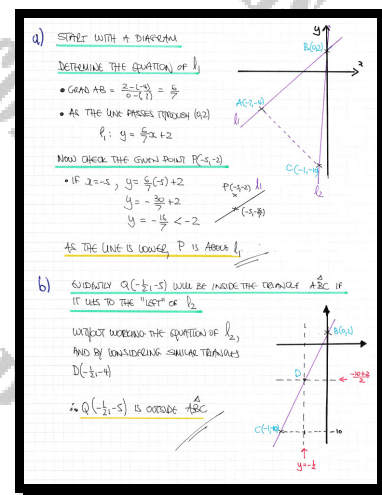 a) START WITH A DIAGRAM
DETERMINE THE EQUATION OF l₁
• GRAD AB = 2-(-4)/0-(-7) = 6/7
• AS THE LINE PASSES THROUGH (0,2)
l₁: y = 6/7x + 2
NOW CHECK THE GIVEN POINT P(-5,-2)
• IF x=-5, y = 6/7(-5)+2
y = -30/7 + 2
y = -16/7 < -2
AS THE LINE IS LOWER, P IS ABOVE l₁
y
x
B(0,2)
A(-7,-4)
l₁
C(-1,-10)
l₂
P(-5,-2) l₁
(-5,-16/7)
b) EVIDENTLY Q(-1/2,-5) WILL BE INSIDE THE TRIANGLE ABC IF
IT LIES TO THE "LEFT" OF l₂
WITHOUT WORKING THE EQUATION OF l₂,
AND BY CONSIDERING SIMILAR TRIANGLES
D(-1/2,-4)
∴ Q(-1/2,-5) IS OUTSIDE ABC
B(0,2)
D
-10+2/2
C(-1,-10)
-10
y=-1/2